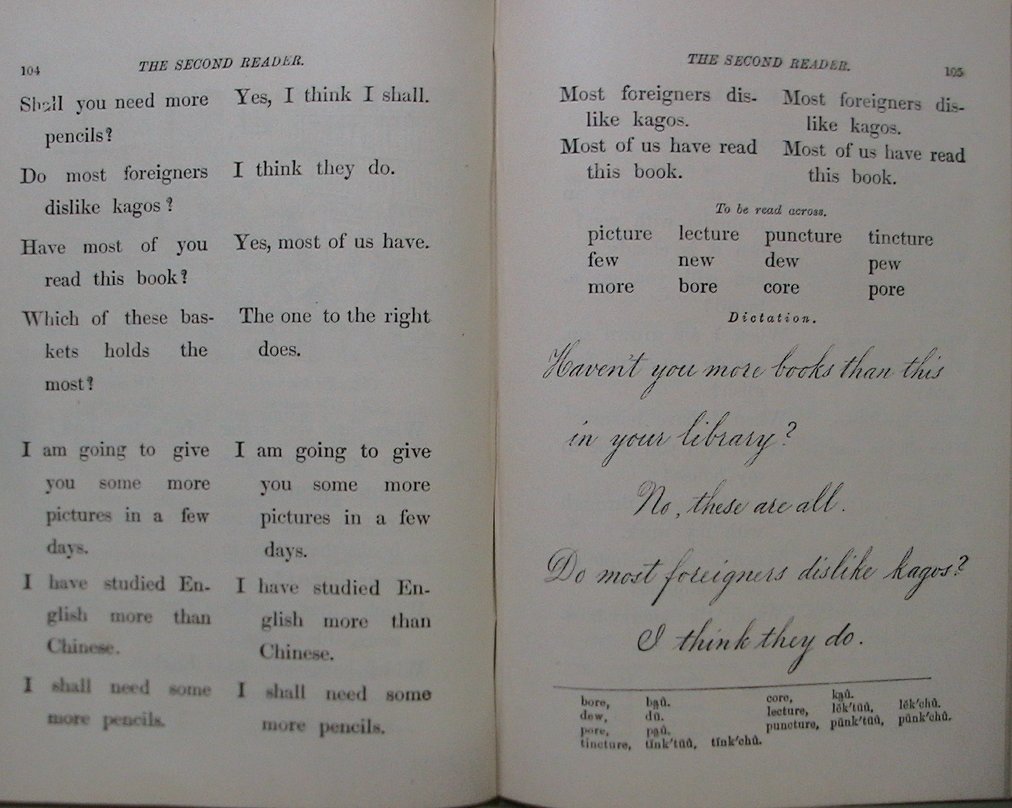 104
THE SECOND READER.
Shall you need more
pencils?
Yes, I think I shall.
Do most foreigners
dislike kagos?
I think they do.
Have most of you
read this book?
Yes, most of us have.
Which of these bas-
kets holds the
most?
The one to the right
does.
I am going to give
you some more
pictures in a few
days.
I am going to give
you some more
pictures in a few
days.
I have studied En-
glish more than
Chinese.
I have studied En-
glish more than
Chinese.
I shall need some
more pencils.
I shall need some
more pencils.
THE SECOND READER.
105
Most foreigners dis-
like kagos.
Most foreigners dis-
like kagos.
Most of us have read
this book.
Most of us have read
this book.
To be read across.
picture lecture puncture tincture
few new dew pew
more bore core pore
Dictation.
Haven't you more books than this
in your library?
No, these are all.
Do most foreigners dislike kagos?
I think they do.
bore,
dew, dū.
pore,
tincture,
core,
lecture,
puncture,